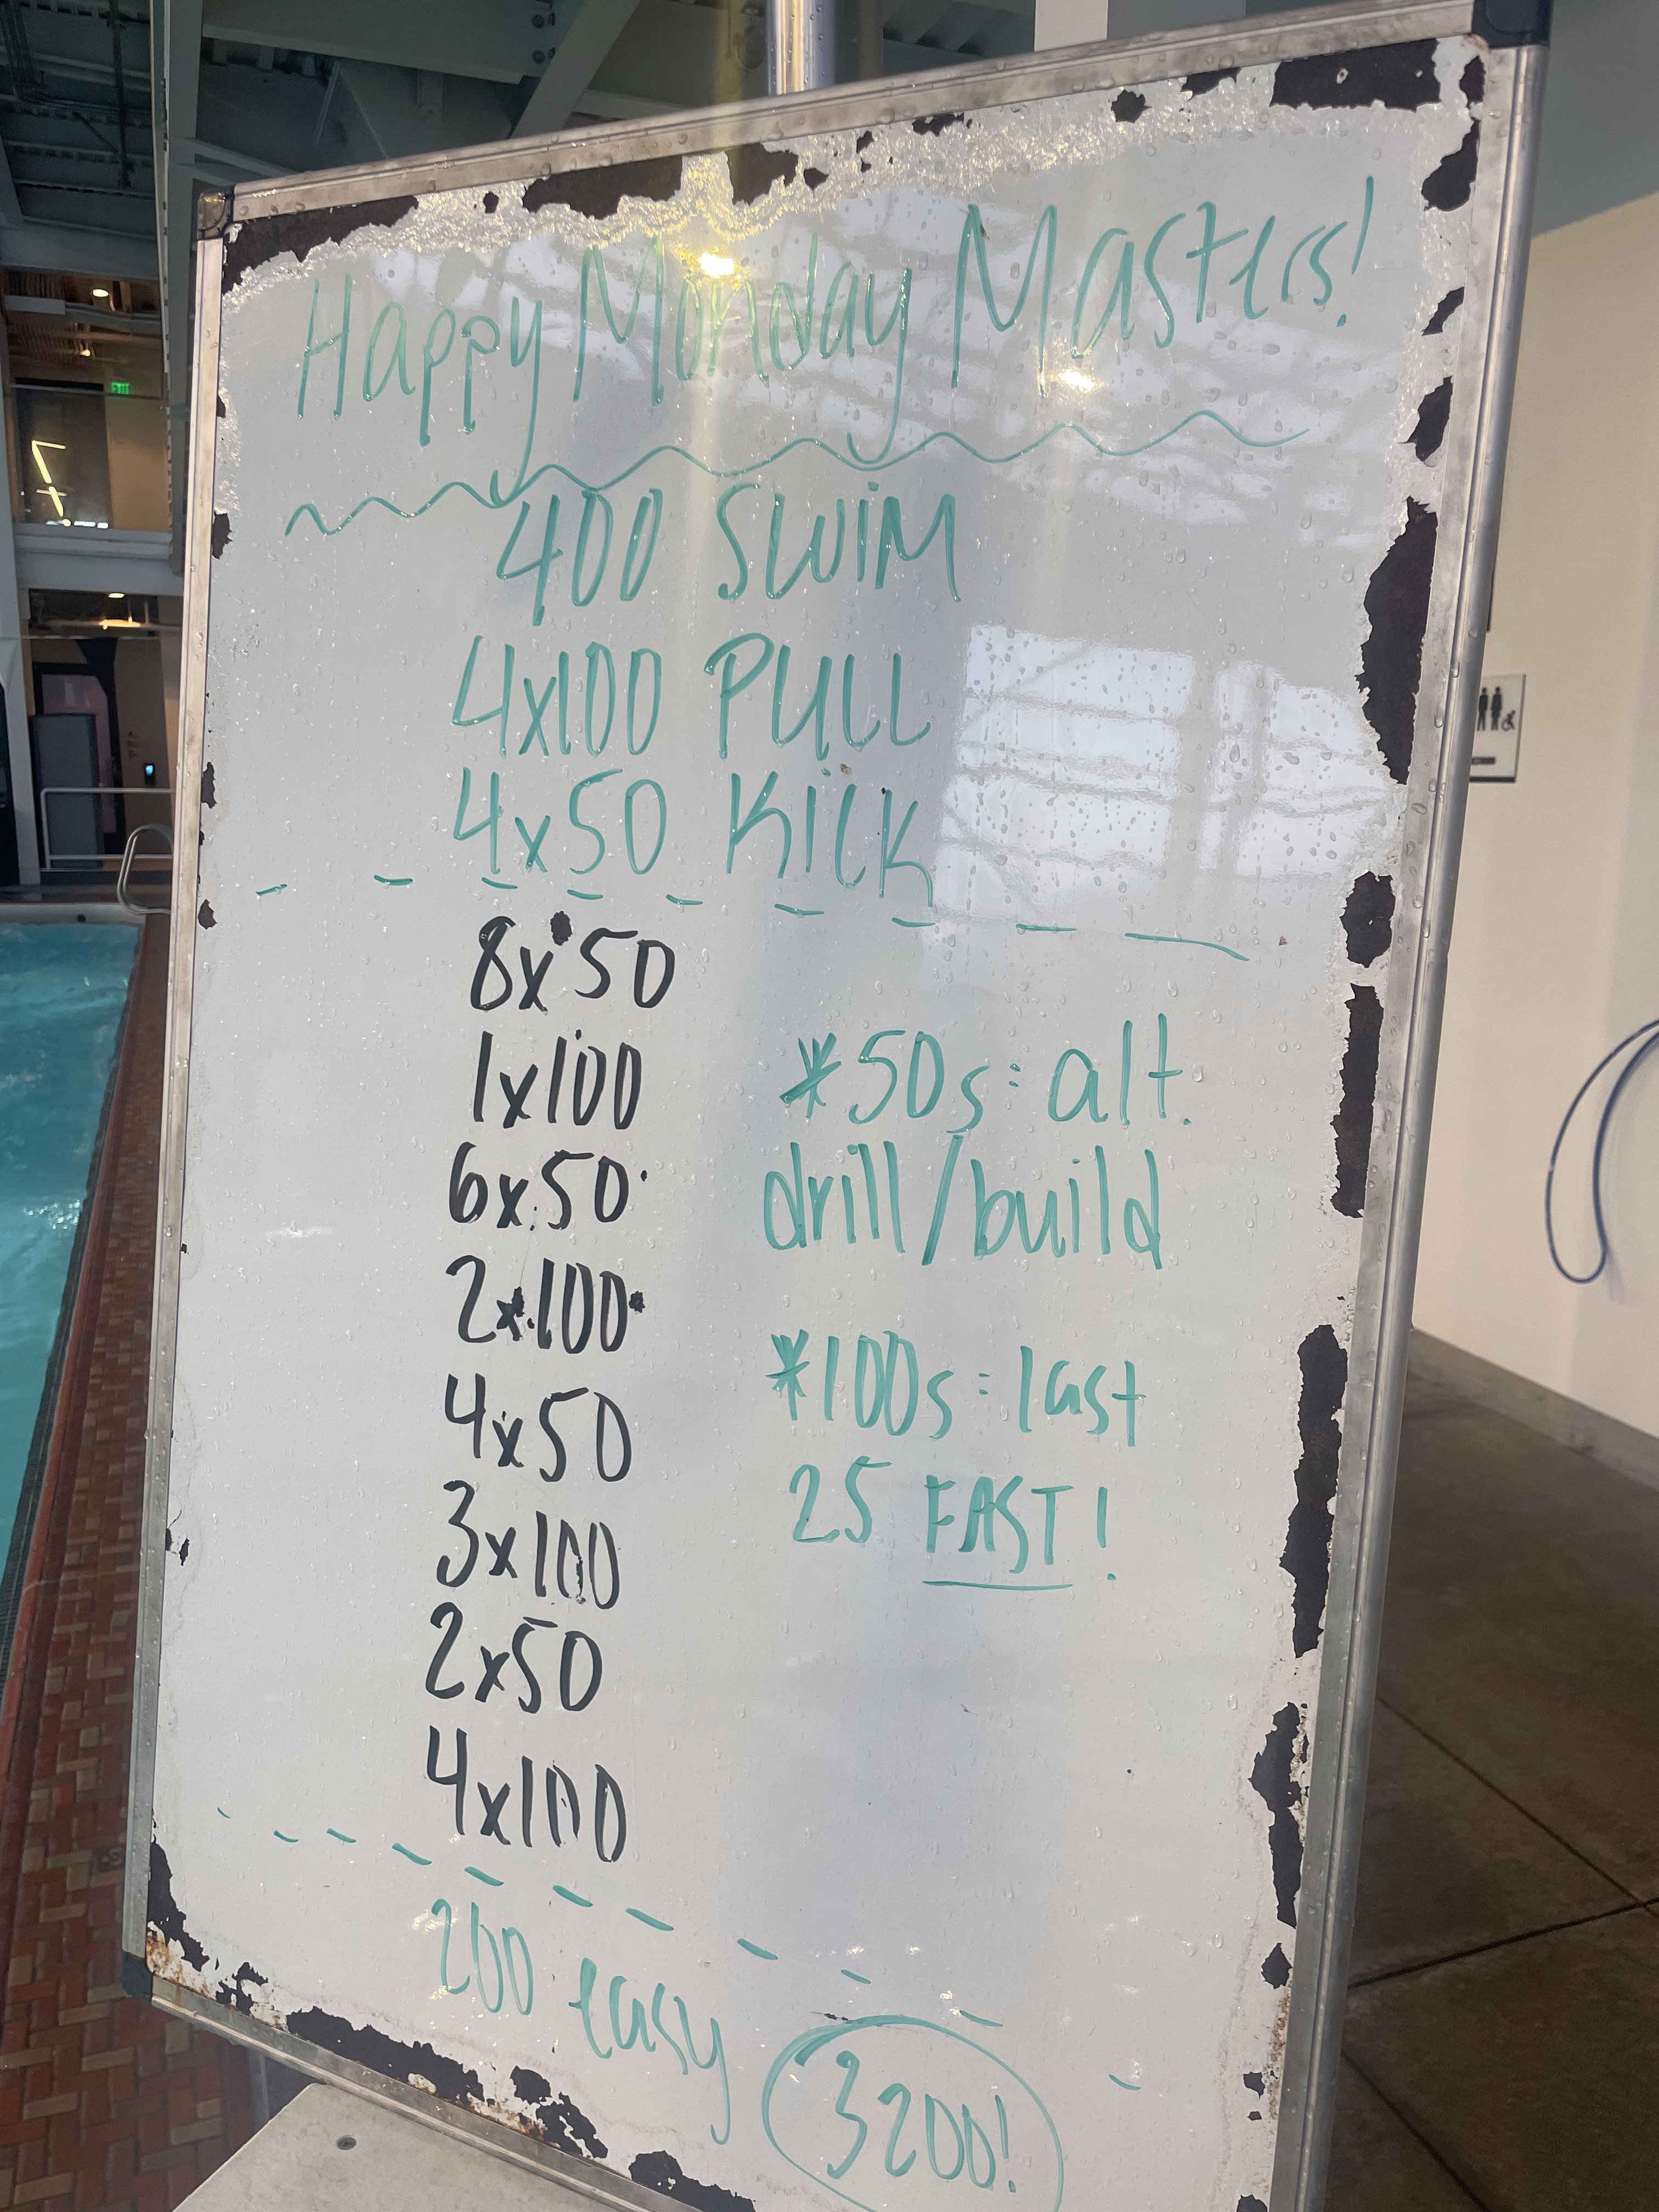 Happy Monday Masters!
400 SWiM
4x100 PULL
4x50 KiCK
8x50
1x100
*50s: alt.
6x50
drill/build
2x100
*100s: last
4x50
25 FAST!
3x100
2x50
4x100
200 easy
3200!